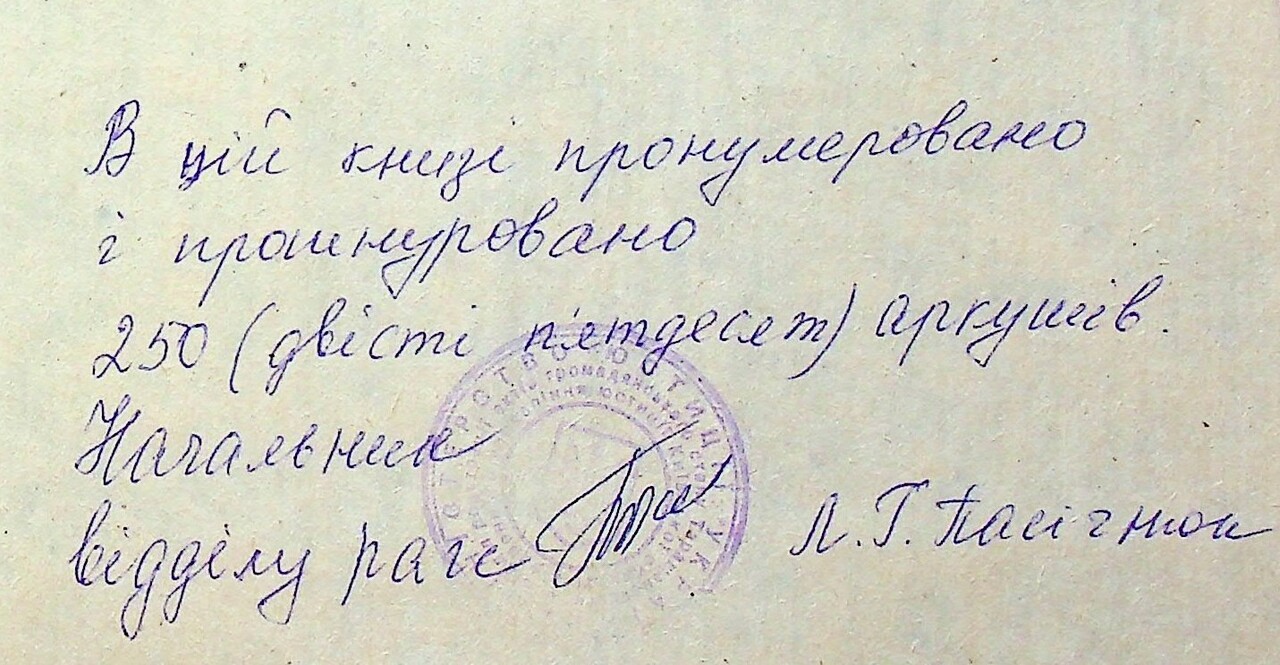 В цій книзі пронумеровано
і прошнуровано
250 (двісті п'ятдесят) аркушів.
Начальник
відділу рагс Л. Г. Пасічнюк